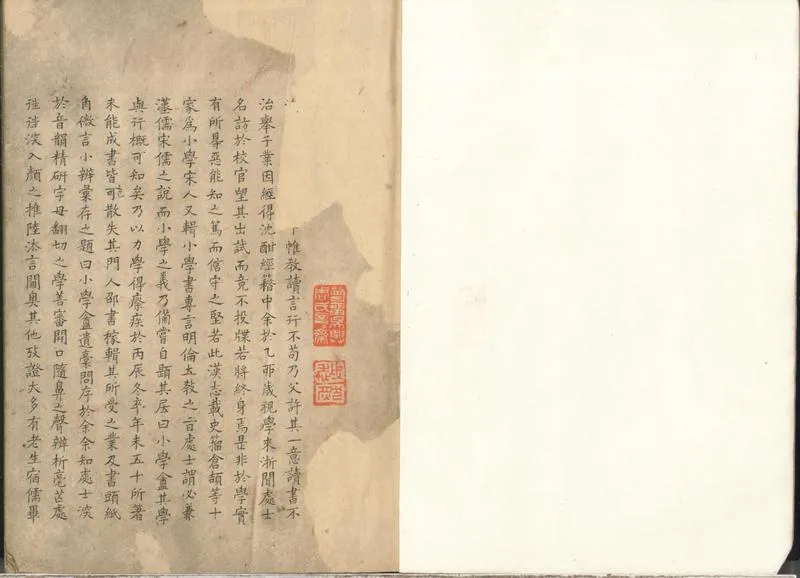 帷教讀言行不苟乃父許其一意讀書不
治舉子業因經得沈酣經籍中余於乙卯歲視學來浙聞處士
名訪於校官望其出試而竟不投牒若將終身焉是非於學實
有所㝵惡能知之篤而信守之堅若此漢志載史籀倉頡等十
家為小學宋人又輯小學書專言明倫立教之旨處士謂必兼
漢儒宋儒之說而小學之義乃備嘗自題其居曰小學盦其學
與行概可知矣乃以力學得瘵疾於丙辰冬卒年未五十所著
未能成書皆可散失其門人邵書稼輯其所受之業及書頭紙
角微言小辨彙存之題曰小學盦遺稾問序於余余知處士湥
於音韻精研字母翻切之學善審開口隨鼻之聲辨析毫芒處
往往湥入顏之推陸法言閫奥其他攷證大多有老生宿儒畢
曾留吳興周氏言言齋